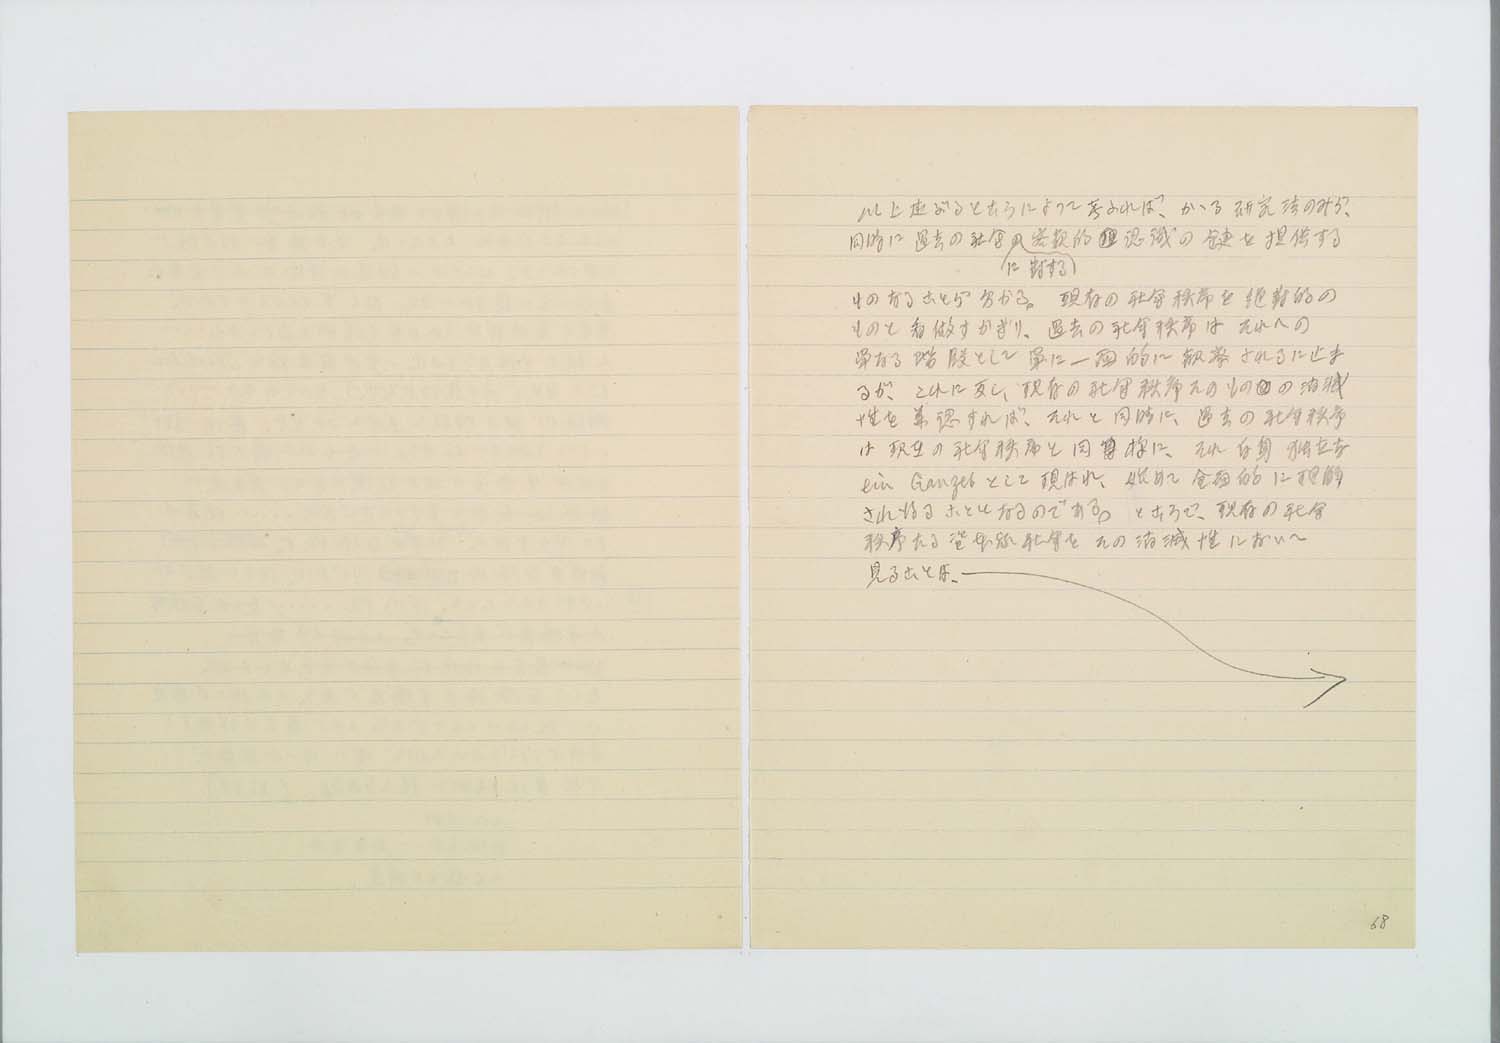 以上述ぶるところによつて考ふれば、かゝる研究法のみが、
同時に過去の社会の客観的認識の鍵を提供する
に対する
ものなることが分かる。現存の社会秩序を絶対的の
ものと看做すかぎり、過去の社会秩序はそれへの
単なる階段として単に一面的に観察されるに止ま
るが、これに反し、現存の社会秩序そのものの消滅
性を承認すれば、それと同時に、過去の社会秩序
は現在の社会秩序と同様に、それ自身独立な
ein Ganzes として現はれ、始めて全面的に理解
され得ることゝなるのである。ところで、現存の社会
秩序たる資本家社会をその消滅性において
見ることは、
68